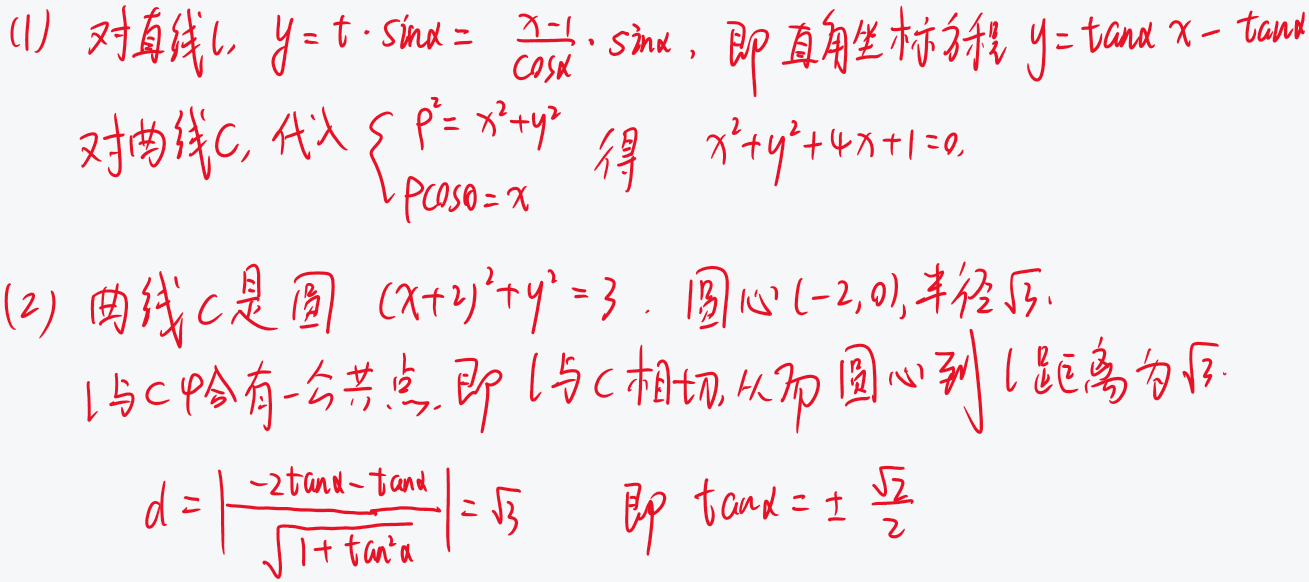 (1) 对直线l, y = t·sinα = \frac{x-1}{cosα}·sinα, 即直角坐标方程 y = tanα x - tanα
对曲线C, 代入 { ρ² = x²+y² ρcosθ = x 得 x²+y²+4x+1=0,
(2) 曲线C是圆 (x+2)²+y²=3. 圆心(-2,0), 半径√3.
l与C恰有一公共点, 即l与C相切, 从而圆心到l距离为√3.
d = |\frac{-2tanα-tanα}{\sqrt{1+tan²α}}| = √3 即 tanα = ± \frac{√2}{2}